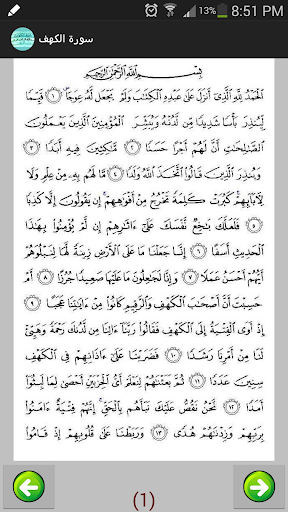 13% 8:51 PM
سورة الكهف
بِسْمِ اللَّهِ الرَّحْمَٰنِ الرَّحِيمِ
الْحَمْدُ لِلَّهِ الَّذِي أَنزَلَ عَلَىٰ عَبْدِهِ الْكِتَابَ وَلَمْ يَجْعَل لَّهُ عِوَجًا ۜ ﴿١﴾ قَيِّمًا
لِّيُنذِرَ بَأْسًا شَدِيدًا مِّن لَّدُنْهُ وَيُبَشِّرَ الْمُؤْمِنِينَ الَّذِينَ يَعْمَلُونَ
الصَّالِحَاتِ أَنَّ لَهُمْ أَجْرًا حَسَنًا ﴿٢﴾ مَّاكِثِينَ فِيهِ أَبَدًا ﴿٣﴾
وَيُنذِرَ الَّذِينَ قَالُوا اتَّخَذَ اللَّهُ وَلَدًا ﴿٤﴾ مَّا لَهُم بِهِ مِنْ عِلْمٍ وَلَا
لِآبَائِهِمْ ۚ كَبُرَتْ كَلِمَةً تَخْرُجُ مِنْ أَفْوَاهِهِمْ ۚ إِن يَقُولُونَ إِلَّا كَذِبًا
﴿٥﴾ فَلَعَلَّكَ بَاخِعٌ نَّفْسَكَ عَلَىٰ آثَارِهِمْ إِن لَّمْ يُؤْمِنُوا بِهَٰذَا
الْحَدِيثِ أَسَفًا ﴿٦﴾ إِنَّا جَعَلْنَا مَا عَلَى الْأَرْضِ زِينَةً لَّهَا لِنَبْلُوَهُمْ
أَيُّهُمْ أَحْسَنُ عَمَلًا ﴿٧﴾ وَإِنَّا لَجَاعِلُونَ مَا عَلَيْهَا صَعِيدًا جُرُزًا ﴿٨﴾ أَمْ
حَسِبْتَ أَنَّ أَصْحَابَ الْكَهْفِ وَالرَّقِيمِ كَانُوا مِنْ آيَاتِنَا عَجَبًا ﴿٩﴾
إِذْ أَوَى الْفِتْيَةُ إِلَى الْكَهْفِ فَقَالُوا رَبَّنَا آتِنَا مِن لَّدُنكَ رَحْمَةً وَهَيِّئْ
لَنَا مِنْ أَمْرِنَا رَشَدًا ﴿١٠﴾ فَضَرَبْنَا عَلَىٰ آذَانِهِمْ فِي الْكَهْفِ
سِنِينَ عَدَدًا ﴿١١﴾ ثُمَّ بَعَثْنَاهُمْ لِنَعْلَمَ أَيُّ الْحِزْبَيْنِ أَحْصَىٰ لِمَا لَبِثُوا
أَمَدًا ﴿١٢﴾ نَّحْنُ نَقُصُّ عَلَيْكَ نَبَأَهُم بِالْحَقِّ ۚ إِنَّهُمْ فِتْيَةٌ آمَنُوا
بِرَبِّهِمْ وَزِدْنَاهُمْ هُدًى ﴿١٣﴾ وَرَبَطْنَا عَلَىٰ قُلُوبِهِمْ إِذْ قَامُوا
(1)